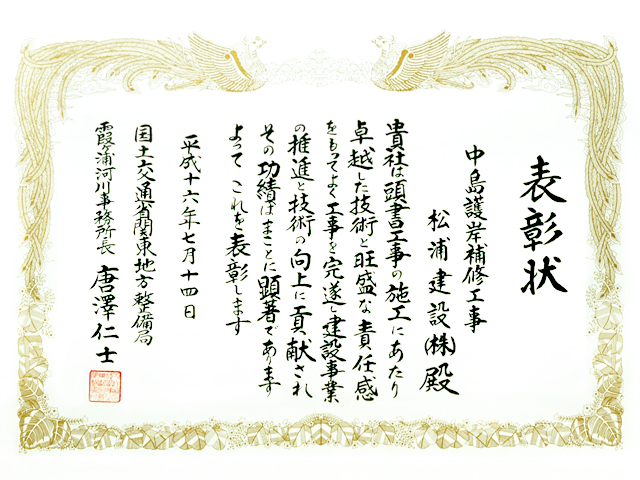 表彰状
中島護岸補修工事
松浦建設(株)殿
貴社は頭書工事の施工にあたり
卓越した技術と旺盛な責任感
をもってよく工事を完遂し建設事業
の推進と技術の向上に貢献され
その功績はまことに顕著であります
よって これを表彰します
平成十六年七月十四日
国土交通省関東地方整備局
霞ヶ浦河川事務所長 唐澤仁士